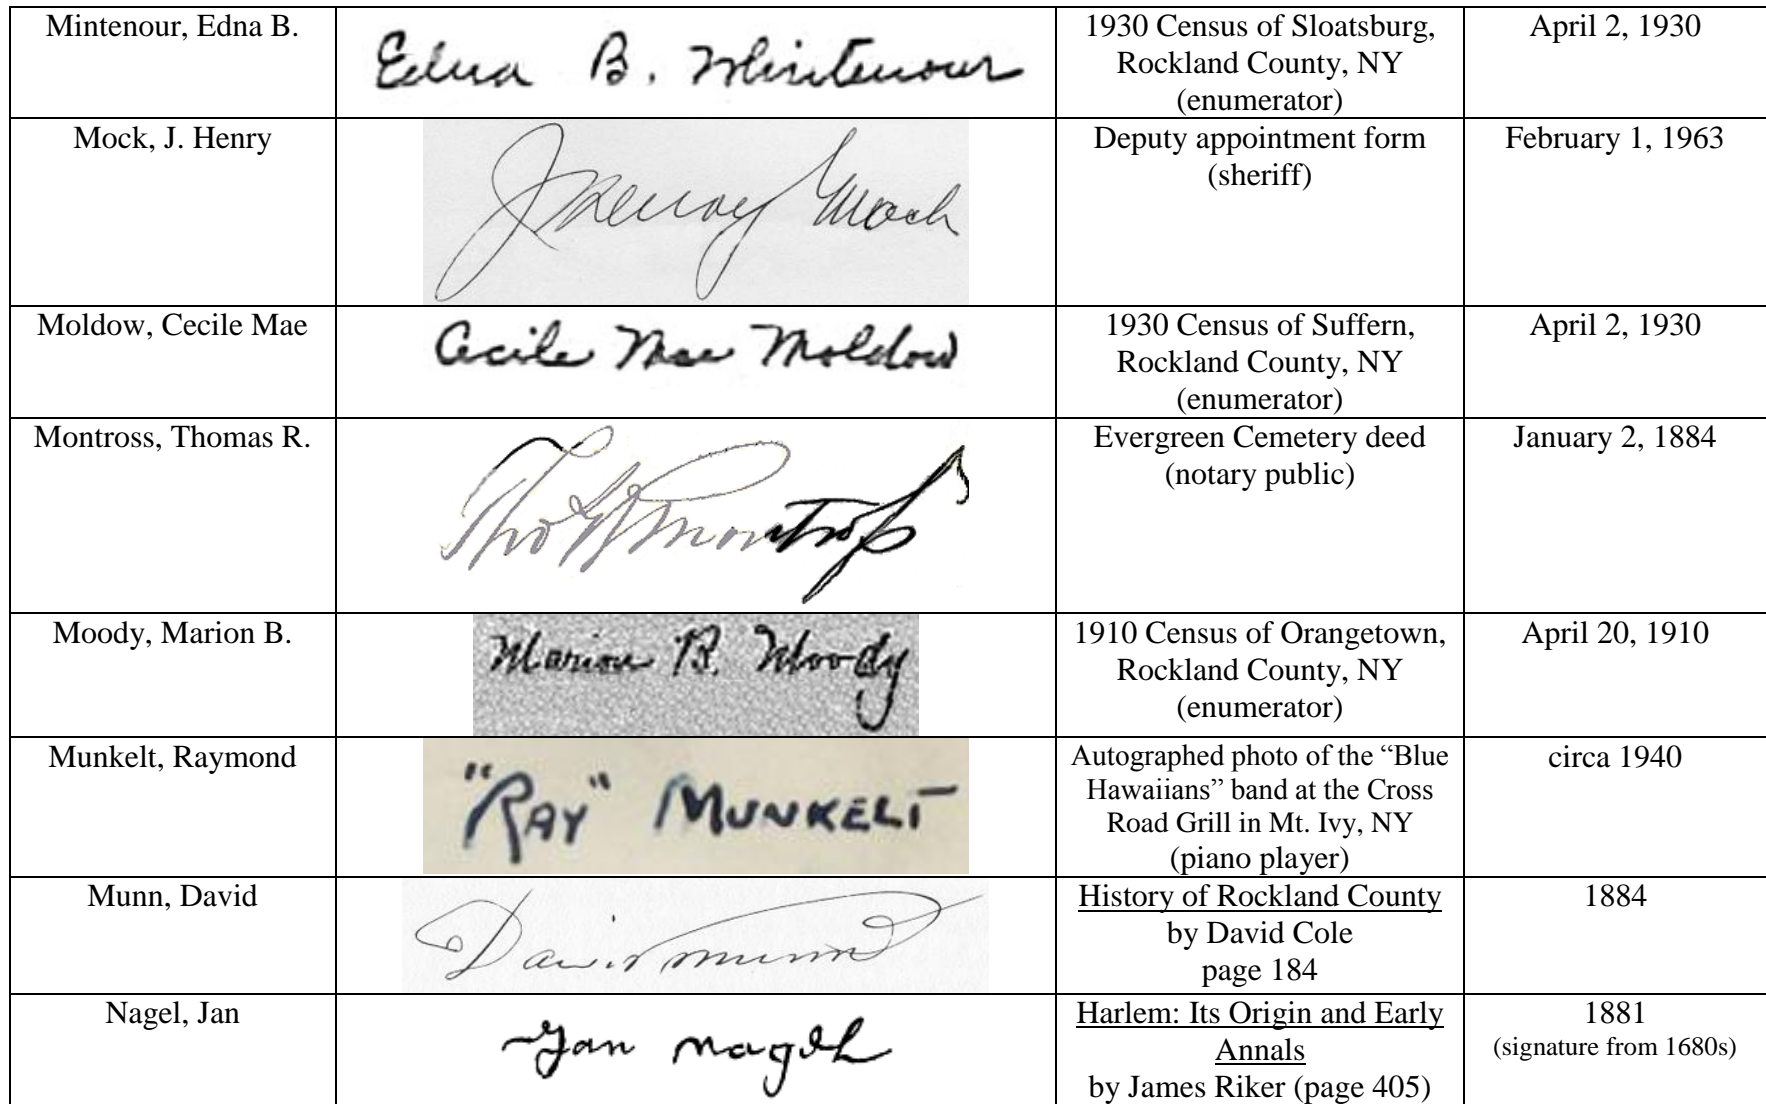 Mintenour, Edna B.
Edna B. Mintenour
1930 Census of Sloatsburg,
Rockland County, NY
(enumerator)
April 2, 1930
Mock, J. Henry
J Henry Mock
Deputy appointment form
(sheriff)
February 1, 1963
Moldow, Cecile Mae
Cecile Mae Moldow
1930 Census of Suffern,
Rockland County, NY
(enumerator)
April 2, 1930
Montross, Thomas R.
Thos R Montross
Evergreen Cemetery deed
(notary public)
January 2, 1884
Moody, Marion B.
Marion B. Moody
1910 Census of Orangetown,
Rockland County, NY
(enumerator)
April 20, 1910
Munkelt, Raymond
"RAY" MUNKELT
Autographed photo of the “Blue
Hawaiians” band at the Cross
Road Grill in Mt. Ivy, NY
(piano player)
circa 1940
Munn, David
David Munn
History of Rockland County
by David Cole
page 184
1884
Nagel, Jan
Jan Nagel
Harlem: Its Origin and Early
Annals
by James Riker (page 405)
1881
(signature from 1680s)